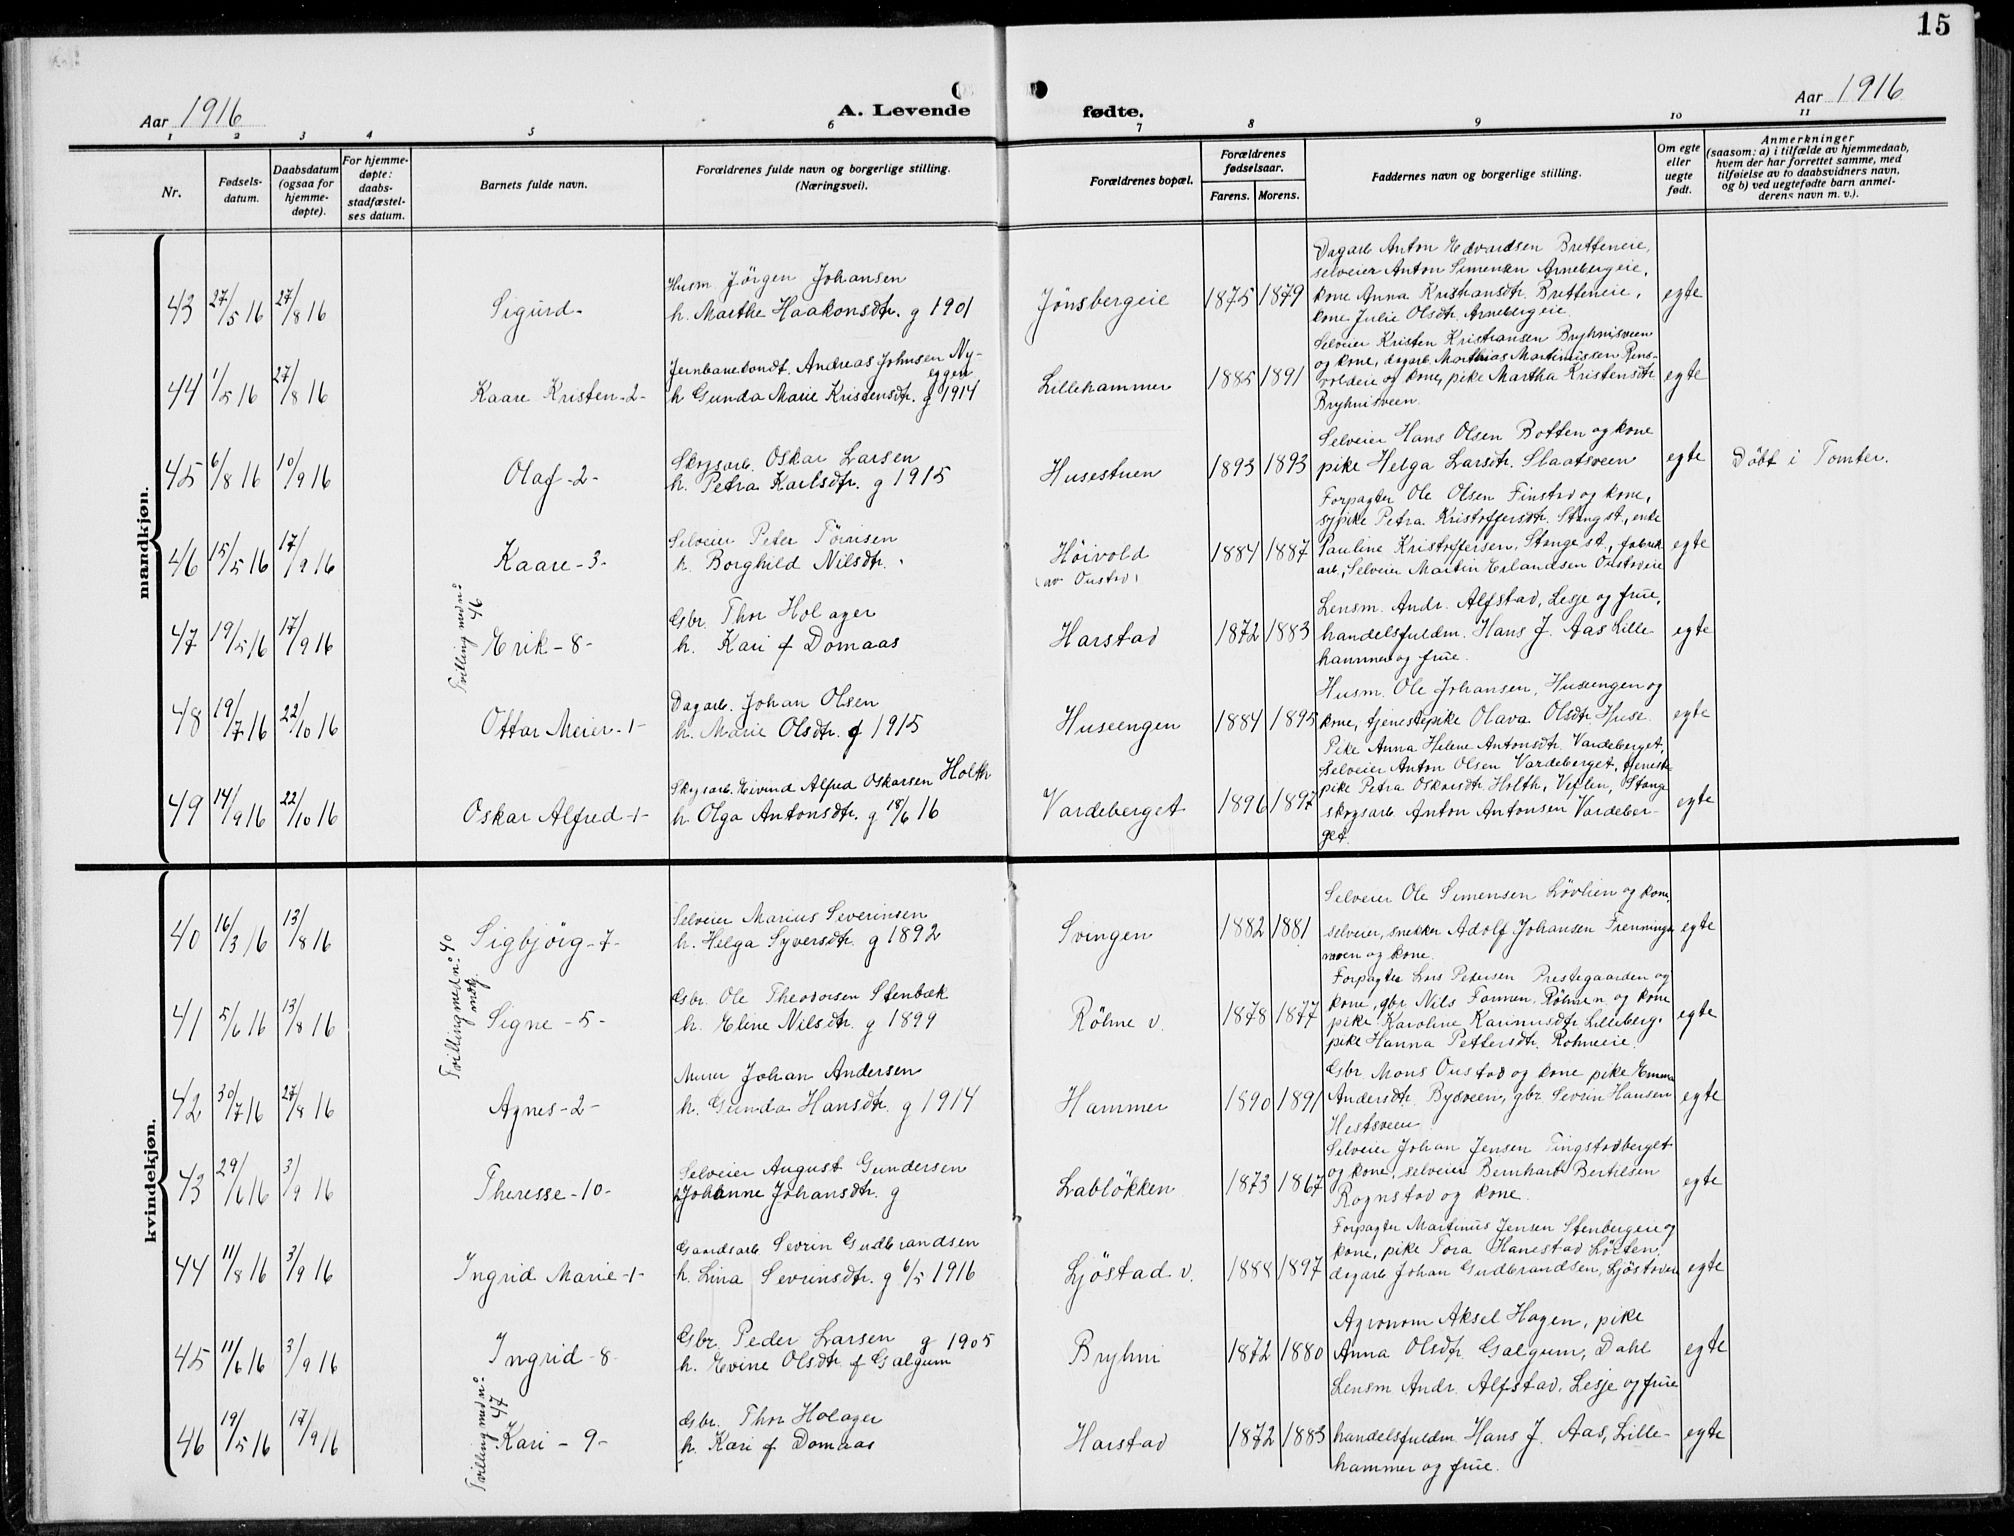 15
Aar 1916
A. Levende
fødte.
Aar 1916
1 2 3 4 5 6 7 8 9 10 11
Nr.
Fødsels-
datum.
Daabsdatum
(ogsaa for
hjemme-
døpte).
For hjemme-
døpte:
daabs-
stadfæstel-
ses datum.
Barnets fulde navn.
Forældrenes fulde navn og borgerlige stilling.
(Næringsvei).
Forældrenes bopæl.
Forældrenes
fødselsaar.
Farens. Morens.
Faddernes navn og borgerlige stilling.
Om egte
eller
uegte
født.
Anmerkninger
(saasom: a) i tilfælde av hjemmedaab,
hvem der har forrettet samme, med
tilføielse av to daabsvidners navn,
og b) ved uegtefødte barn anmel-
derens navn m. v.).
mandkjøn.
43 27/5 16 27/8 16 Sigurd
Husm. Jörgen Johansen
h. Marthe Haakonsdtr. g 1901
Jönsbergeie 1875 1879
Dagarb Anton Edvardsen Bretteneie,
selveier Anton Simensen Arnebergeie,
kone Anna Kristiansdtr. Bretteneie,
kone Julie Olsdtr. Arnebergeie.
egte
44 1/5 16 27/8 16 Kaare Kristen -2-
Jernbanekondt. Andreas Johnsen Ny-
eggen
h Gunda Marie Kristensdtr. g 1914
Lillehammer 1885 1891
Selveier Kristen Kristiansen Bryhnisveen
og kone, dagarb. Marthias Martinussen Rens-
voldeie og kone, pike Martha Kristensdtr
Bryhnisveen.
egte
45 6/8 16 10/9 16 Olaf -2-
Skogsarb. Oskar Larsen
h. Petra Karlsdtr. g 1915
Husestuen 1893 1893
Selveier Hans Olsen Botten og kone
pike Helga Larsdtr. Slaatsveen
egte
Döbt i Tomter.
46 15/5 16 17/9 16 Kaare -3-
Selveier Peter Törrisen
h. Borghild Nilsdtr.
Höivold
(av Oustad)
1884 1887
Forpagter Ole Olsen Finstad og kone,
sypike Petra Kristoffersdtr. Stange st., enke
Pauline Kristoffersen, Stange st., fabrik
arb., Selveier Martin Erlandsen Oustadeie
egte
Tvilling med n:o
46
47 19/5 16 17/9 16 Erik -8-
Gbr. Thor Holager
h. Kari f Domaas
Harstad 1872 1883
Lensm. Andr. Alfstad, Lesje og frue,
handelsfuldm. Hans J. Aas Lille
hammer og frue.
egte
48 19/7 16 22/10 16 Ottar Meier -1-
Dagarb. Johan Olsen
h. Marie Olsdtr. g 1915
Huseengen 1884 1895
Husm. Ole Johansen, Huseengen og
kone, tjenestepike Olava Olsdtr Huse.
egte
49 14/9 16 22/10 16 Oskar Alfred -1-
Skogsarb. Eivind Alfred Oskarsen Holth
h. Olga Antonsdtr. g 18/6 16
Vardeberget 1896 1897
Pike Anna Helene Antonsdtr. Vardeberget,
selveier Anton Olsen Vardeberget, tjeneste
pike Petra Oskarsdtr Holth, Veflen, Stange
skogsarb. Anton Antonsen Vardeber-
get.
egte
kvindekjøn.
40 16/3 16 13/8 16 Sigbjörg -7-
Selveier Marius Severinsen
h. Helga Syversdtr. g 1892
Svingen 1882 1881
Selveier Ole Simensen Lövlien og kone,
selveier, snekker Adolf Johansen Frenninge
moen og kone.
egte
Tvilling med n:o 40
41 5/6 16 13/8 16 Signe -5-
Gbr. Ole Theodorsen Stenbæk
h. Eline Nilsdtr. g 1899
Röhne v. 1878 1877
Forpagter Lars Pedersen Prestegaarden og
kone, gbr. Nils Fonnen, Röhne n. og kone
pike Karoline Karinusdtr Lilleberg,
pike Hanna Pettersdtr. Rohneeie.
egte
42 30/7 16 27/8 16 Agnes -2-
Murer Johan Andersen
h. Gunda Hansdtr. g 1914
Hammer 1890 1891
Gbr. Mons Oustad og kone pike Emma
Andersdtr. Bydveen, gbr. Sevrin Hansen
Hestsveen
egte
43 29/6 16 3/9 16 Theresse -10-
Selveier August Gundersen
Johanne Johansdtr. g
Lablökken 1873 1867
Selveier Johan Jensen Tingstadberget
og kone, selveier Bernhart Bertilsen
Rognstad og kone.
egte
44 11/8 16 3/9 16 Ingrid Marie -1-
Gaardsarb. Sevrin Gudbrandsen
h. Lina Sevrinsdtr. g 6/5 1916
Ljöstad v. 1888 1897
Forpagter Martinus Jensen Stenbergeie og
kone, pike Tora Hanestad Löiten,
dagarb Johan Gudbrandsen, Ljöstadve
egte
45 11/6 16 3/9 16 Ingrid -8-
Gbr. Peder Larsen g 1905
h. Evine Olsdtr. f Galgum
Bryhni 1872 1880
Agronom Aksel Hagen, pike
Anna Olsdtr. Galgum, Dahl
egte
Tvilling med n:o
47
46 19/5 16 17/9 16 Kari -9-
Gbr. Thor Holager
h. Kari f Domaas
Harstad 1872 1883
Lensm Andr. Alfstad, Lesje og frue
handelsfuldm Hans J. Aas, Lille-
hammer og frue.
egte